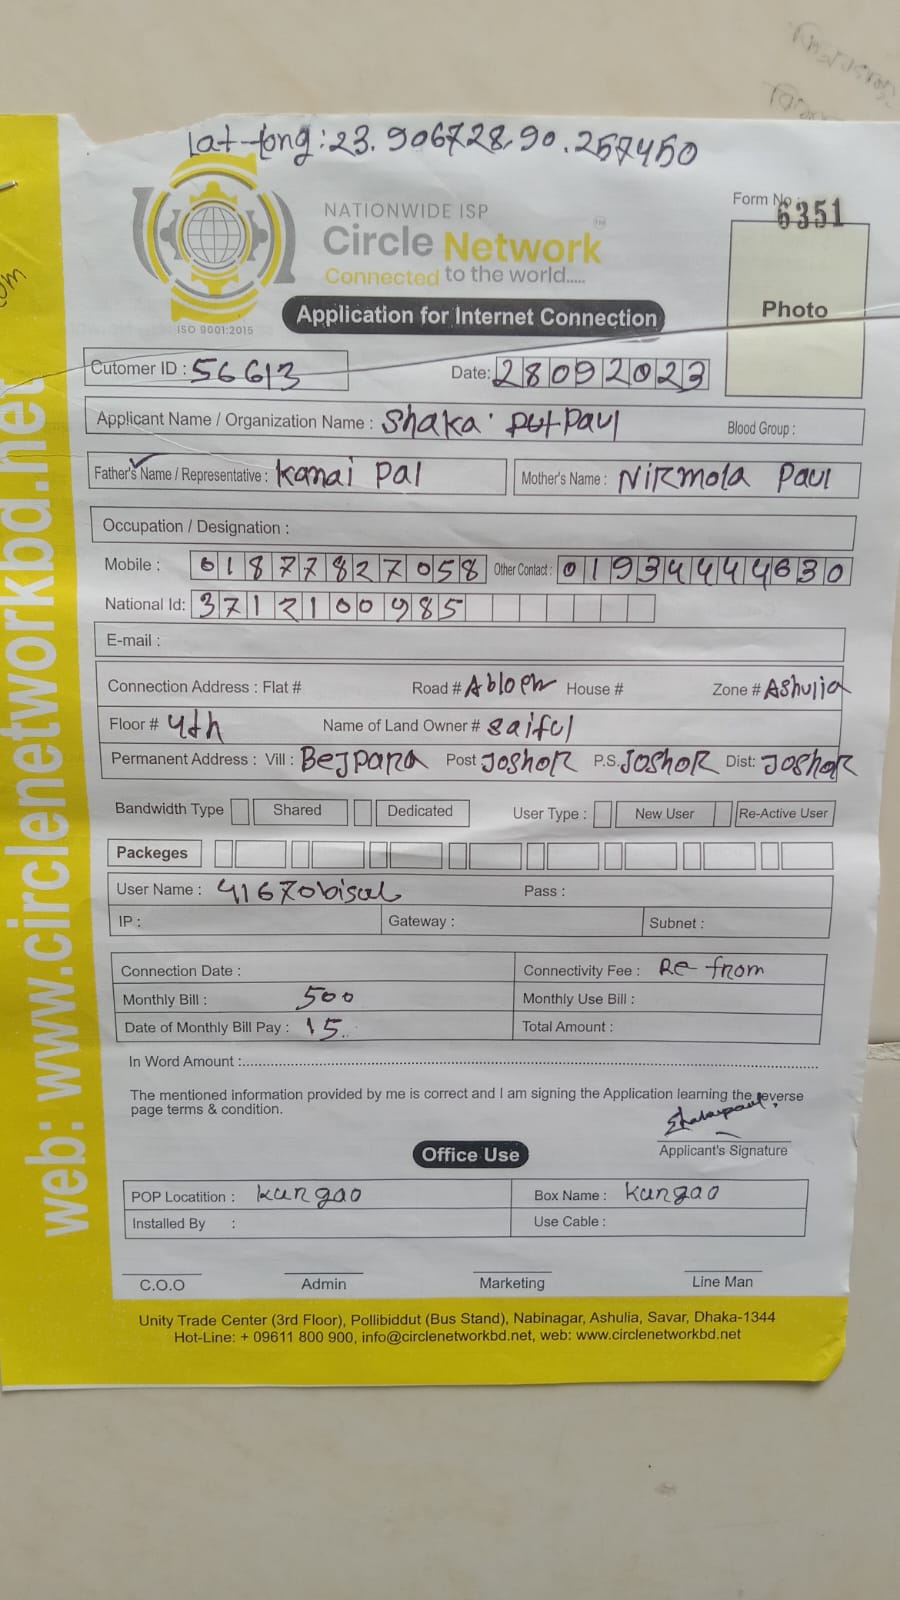 Lat-long:23.906728,90.257450
NATIONWIDE ISP
Circle Network
Connected to the world.....
ISO 9001:2015
Form No
6351
Photo
Application for Internet Connection
Cutomer ID : 56613
Date: 28092023
Applicant Name / Organization Name : Shaka
Blood Group :
Father's Name / Representative : Kanai Pal
Mother's Name : Nirmola Paul
Occupation / Designation :
Mobile : 01877827058 Other Contact : 01934444630
National Id: 3712100985
E-mail :
Connection Address : Flat # Road # House # Zone # Ashulia
Floor # 4th Name of Land Owner # Saiful
Permanent Address : Vill : Bejpara Post Joshor P.S. Joshor Dist: Joshor
Bandwidth Type Shared Dedicated User Type : New User Re-Active User
Packeges
User Name : 41670bisal Pass :
IP : Gateway : Subnet :
Connection Date : Connectivity Fee : Re from
Monthly Bill : 500 Monthly Use Bill :
Date of Monthly Bill Pay : 15 Total Amount :
In Word Amount :
The mentioned information provided by me is correct and I am signing the Application learning the reverse
page terms & condition.
Applicant's Signature
Office Use
POP Locatition : Kungao Box Name : Kungao
Installed By : Use Cable :
C.O.O Admin Marketing Line Man
Unity Trade Center (3rd Floor), Pollibiddut (Bus Stand), Nabinagar, Ashulia, Savar, Dhaka-1344
Hot-Line: + 09611 800 900, info@circlenetworkbd.net, web: www.circlenetworkbd.net
web: www.circlenetworkbd.net